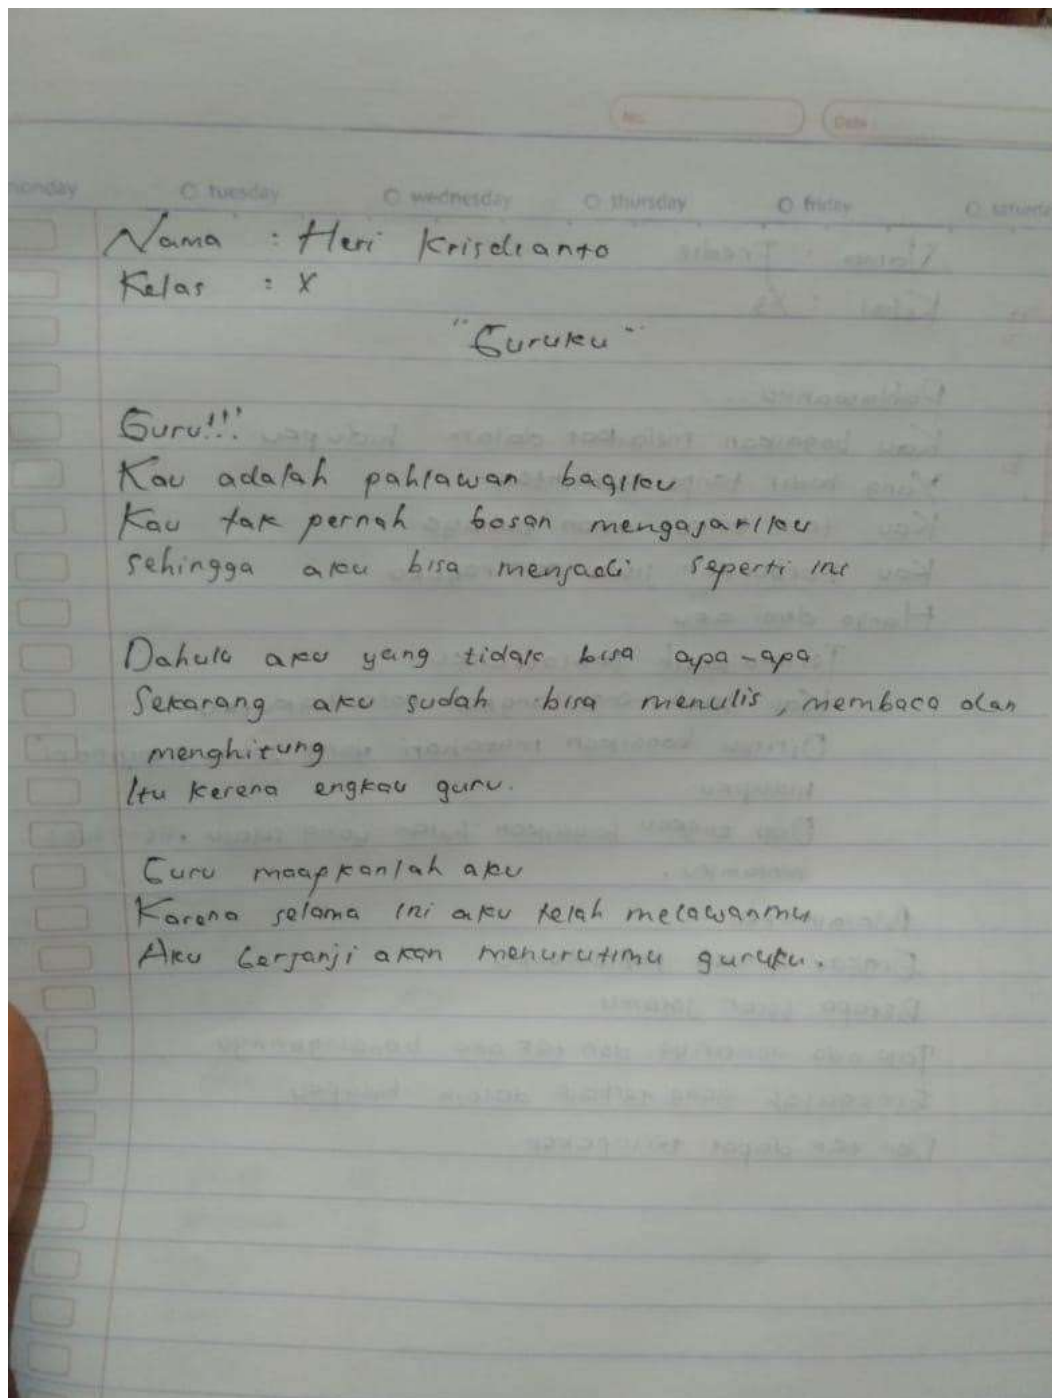 No.
Date
monday tuesday wednesday thursday friday
Nama : Heri Krisdianto
Kelas : X
"Guruku"
Guru!!!
Kau adalah pahlawan bagiku
Kau tak pernah bosan mengajariku
sehingga aku bisa menjadi seperti ini
Dahulu aku yang tidak bisa apa-apa
Sekarang aku sudah bisa menulis, membaca dan
menghitung
Itu kerena engkau guru.
Guru maapkanlah aku
Karena selama ini aku telah melawanmu
Aku berjanji akan menurutimu guruku.